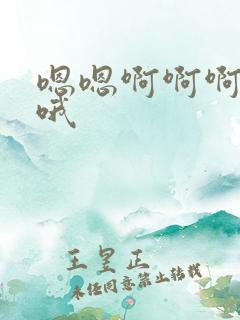 嗯嗯啊啊啊
哦
王皇正
未经同意禁止转载